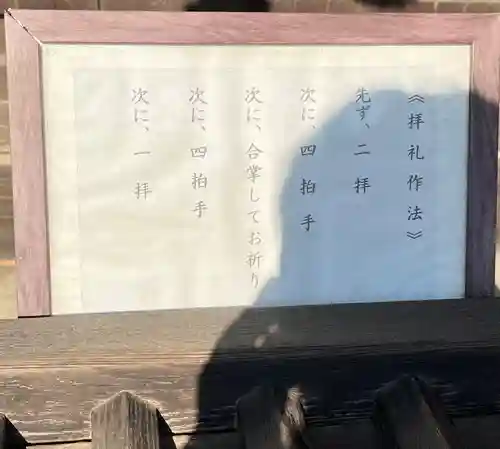 《拝礼作法》
先ず、二拝
次に、四拍手
次に、合掌してお祈り
次に、四拍手
次に、一拝